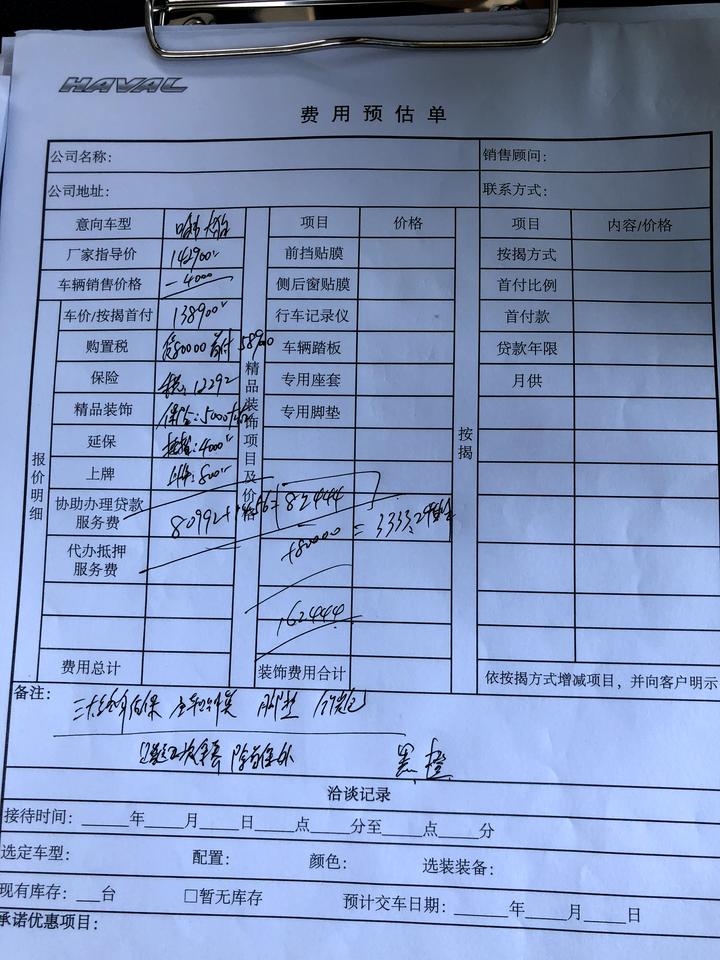 HAVAL
费用预估单
公司名称：
销售顾问：
公司地址：
联系方式：
意向车型 哈弗大狗 项目 价格 项目 内容/价格
厂家指导价 142900 前挡贴膜 按揭方式
车辆销售价格 -4000 侧后窗贴膜 首付比例
车价/按揭首付 138900 行车记录仪 首付款
购置税 贷80000 首付 58900 车辆踏板 贷款年限
保险 税：12292 专用座套 月供
精品装饰 保险：5000 专用脚垫
延保 4000
上牌 上牌：800
报价明细
精品装饰项目及价格
按揭
协助办理贷款服务费 80992+1456=82444
代办抵押服务费 +80000 = 3333.2
162444
费用总计 装饰费用合计 依按揭方式增减项目，并向客户明示
备注：
脚垫
黑 橙
洽谈记录
接待时间：_____年____月____日_____点_____分至____点_____分
选定车型： 配置： 颜色： 选装装备：
现有库存：___台 □暂无库存 预计交车日期：______年_____月_____日
承诺优惠项目：